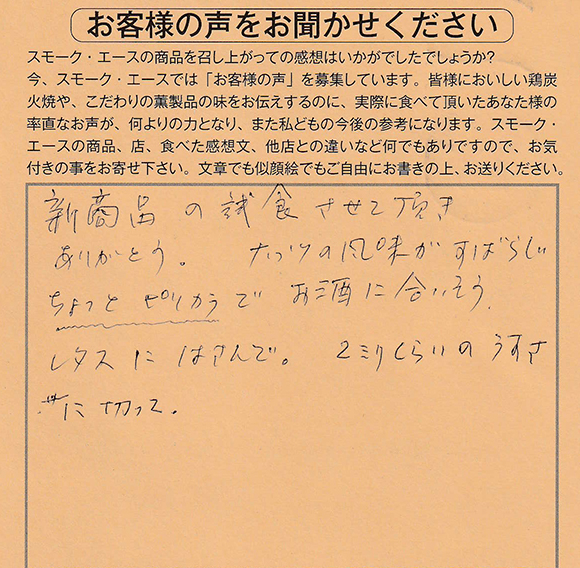 お客様の声をお聞かせください
スモーク・エースの商品を召し上がっての感想はいかがでしたでしょうか?
今、スモーク・エースでは「お客様の声」を募集しています。皆様においしい鶏炭
火焼や、こだわりの薫製品の味をお伝えするのに、実際に食べて頂いたあなた様の
率直なお声が、何よりの力となり、また私どもの今後の参考になります。スモーク・
エースの商品、店、食べた感想文、他店との違いなど何でもありですので、お気
付きの事をお寄せ下さい。文章でも似顔絵でもご自由にお書きの上、お送りください。
新商品の試食させて頂き
ありがとう。ナッツの風味がすばらしい
ちょっとピリカラでお酒に合いそう
レタスにはさんで。2ミリくらいのうすさ
に切って。